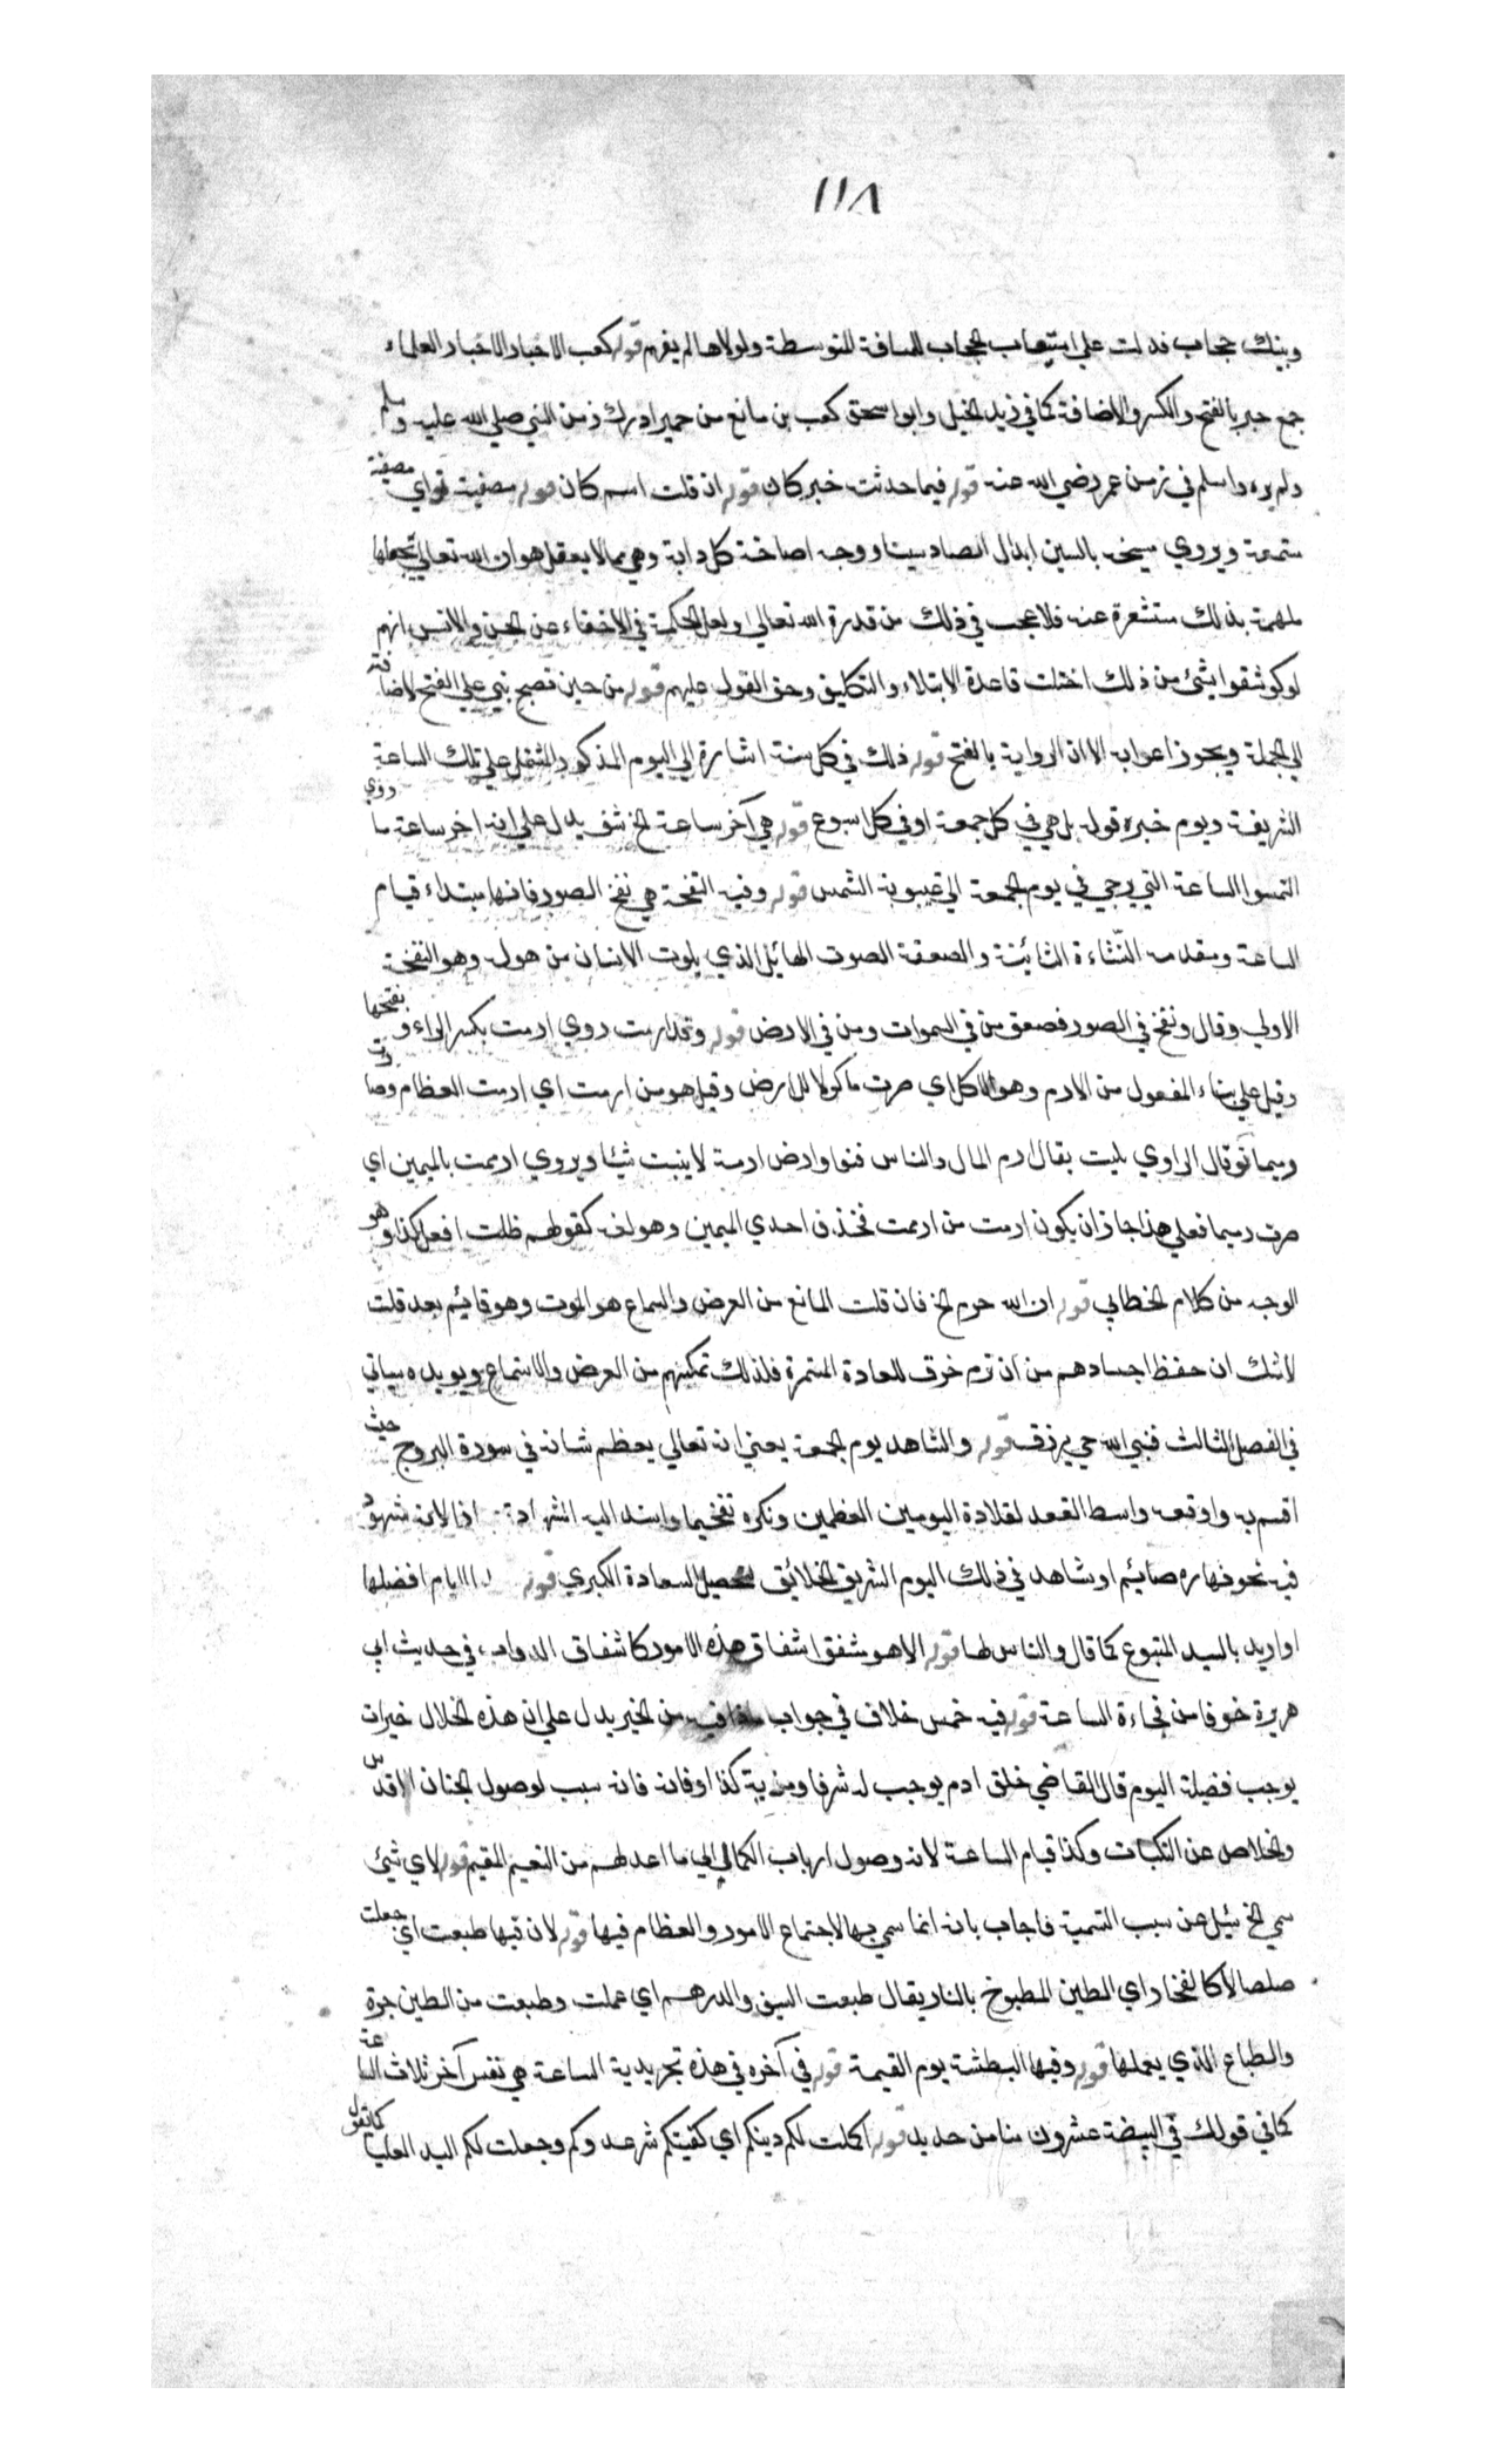 ١١٨
وبينك حجاب فدلت على استيعاب الحجاب المسافة المتوسطة ولولاها لم يفهم قوله كعب الاحبار الاحبار العلماء
جمع حبر بالفتح والكسر والاضافة كما في زيد الخيل وابو اسحق كعب بن مانع من حمير ادرك زمن النبي صلي الله عليه وسلم
ولم يره واسلم في زمن عمر رضي الله عنه قوله فيما حدثت خبر كان قوله ان قلت اسم كان قوله مصيخة اي
ستمعة ويروي مسيخه بالسين ابدال الصاد سينا ووجه اصاخة كل دابة وهي مما لا يعقل هو ان الله تعالي يجعلها
ملهمة بذلك مستشعرة عنه فلا عجب في ذلك من قدرة الله تعالي ولعل الحكمة في الاخفاء عن الجن والانس انهم
لو كوشفوا بشئ من ذلك اختلت قاعدة الابتلاء والتكليف وحق القول عليهم قوله من حين تصبح بني علي الفتح لاضافته
الي الجملة ويجوز اعرابه الا ان الرواية بالفتح قوله ذلك في كل سنة اشارة الي اليوم المذكور المشتمل علي تلك الساعة
الشريفة ويوم خبره قوله بل هي في كل جمعة او في كل اسبوع قوله هي آخر ساعة الخ يدل علي انه اخر ساعة ما روي
التمسوا الساعة التي ترجي في يوم الجمعة الي غيبوبة الشمس قوله وفيه النفخة هي نفخ الصور فانها مبتداء قيام
الساعة ومقدمه النشاءة الثانية والصعقة الصوت الهائل الذي يموت الانسان من هوله وهو النفخة
الاولي وقال ونفخ في الصور فصعق من في السموات ومن في الارض قوله وقد ارمت روي ارمت بكسر الراء وبفتحها
وقيل علي بناء المفعول من الارم وهو الاكل اي صرت ماكولا للارض وقيل هو من ارمت اي ارمت العظام وصارت
رميما قال الراوي بليت يقال ارم المال والناس فنوا وارض ارمة لا ينبت شيئا ويروي ارممت بالميمين اي
صرت رميما فعلي هذا جاز ان يكون ارمت من ارممت فحذف احدي الميمين وهو لغة كقولهم ظلت افعل كذا وهو
الوجه من كلام الخطابي قوله ان الله حرم الخ فان قلت المانع من العرض والسماع هو الموت وهو قائيم بعد قلت
لا شك ان حفظ اجسادهم من ان ترم خرق للعادة المستمرة فلذلك تمكينهم من العرض والاستماع ويويده سياتي
في الفصل الثالث فنبي الله حي يرزق قوله والشاهد يوم الجمعة يعني انه تعالي يعظم شانه في سورة البروج حيث
اقسم به واوقعه واسط العقد لقلادة اليومين العظمين ونكره تفخيما واسند اليه الشهادة اذا لانه شهود
فيه نحو فنهاره صائيم او شاهد في ذلك اليوم الشريف الخلائق لتحصيل السعادة الكبري قوله الايام افضلها
او اريد بالسيد المتبوع كما قال والناس لها قوله الا هو شفقا اشفاق هذه الامور كاشفاق الدواب في حديث ابي
هريرة خوفا من فجاءة الساعة قوله فيه خمس خلاف في جواب من الخير يدل علي ان هذه الخلال خيرات
يوجب فضيلة اليوم قال القاضي خلق ادم يوجب له شرفا ومزية كذا وفاته فانه سبب لوصول الجنان الاقدس
والخلاص عن النكبات وكذا قيام الساعة لانه وصول ارباب الكمال الي ما اعد لهم من النعيم المقيم قوله لاي شئ
سمي الخ سئيل عن سبب التسمية فاجاب بانه انما سمي بها لاجتماع الامور والعظام فيها قوله لان فيها طبعت اي جعلت
صلصالا كالفخار اي الطين المطبوخ بالنار يقال طبعت السيف والدرهم اي عملت وطبعت من الطين جرة
والطباع الذي يعملها قوله وفيها البطشة يوم القيمة قوله في آخره في هذه تجريدية الساعة هي نفس آخر ثلاث الساعة
كما في قولك في البيضة عشرون منا من حديد قوله اكملت لكم دينكم اي كفيتكم شر عدوكم وجعلت لكم اليد العليا كما تقول